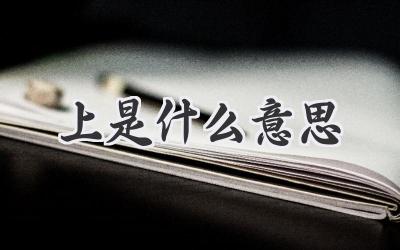 上是什么意思